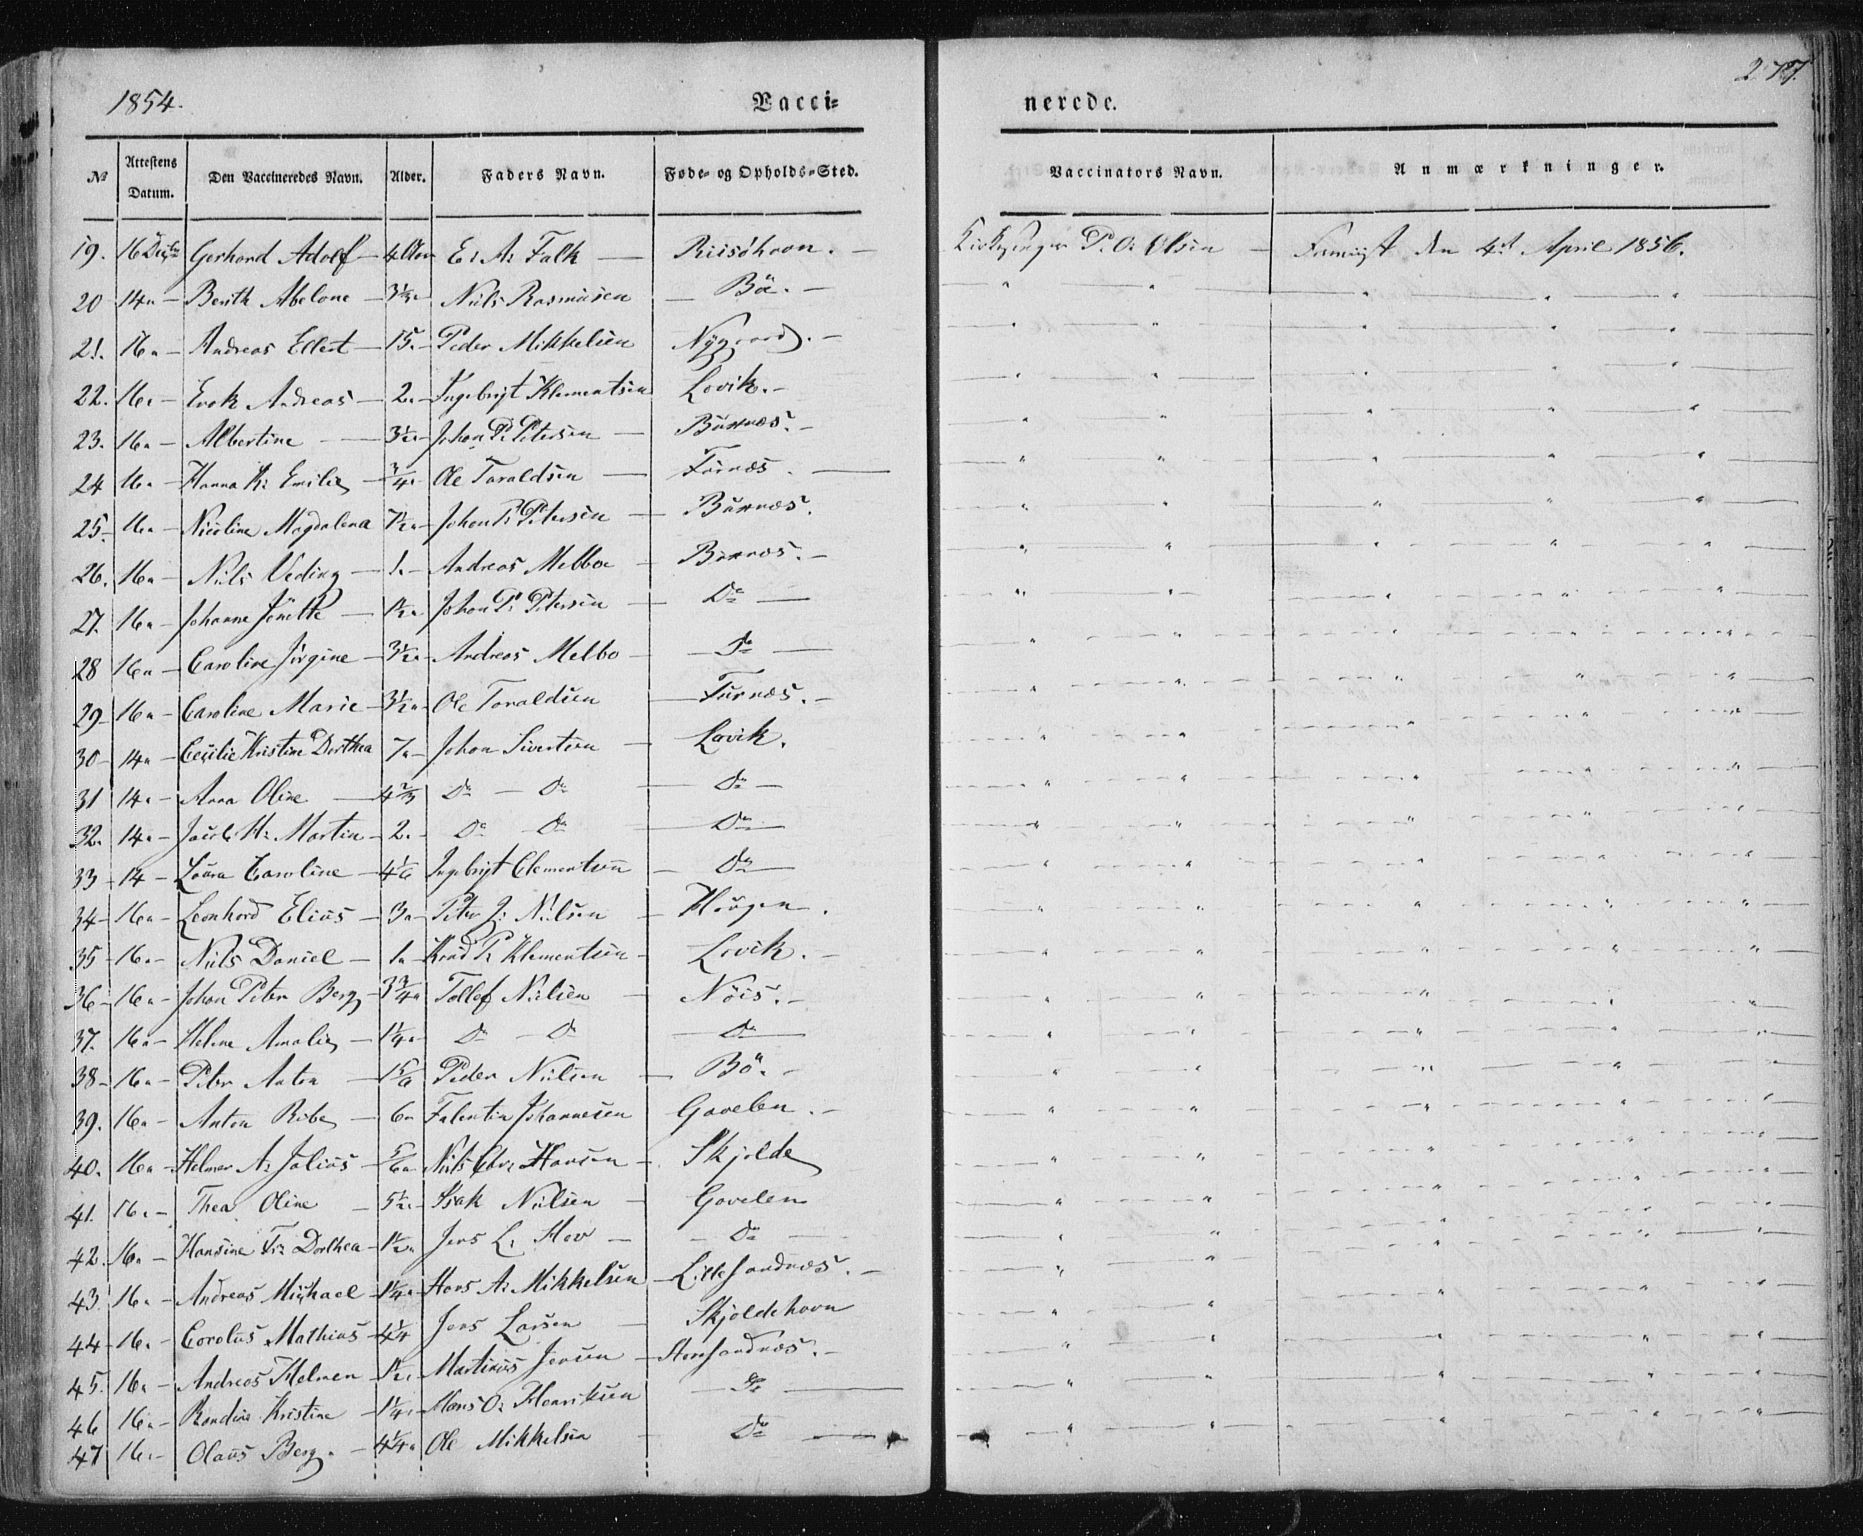 1854.
277.
Vacci=
nerede.
№ Attestens Datum. Den Vaccineredes Navn. Alder. Faders Navn. Føde- og Opholds-Sted. Vaccinators Navn. Anmærkninger.
19. 16 Gerhard Adolf 4 E: A: Falk Kirkesanger P. O: Olsen den 4de April 1856.
20 14 " Berith Abelone Niels Rasmusen Bö. " " " " "
21. 16 " Andreas Ellert 15. Peder Mikkelsen Nÿgaard. " " " " "
22. 16 " Erok Andreas 2 " Ingebrigt Klementsen Lovik. " " " " "
23. 16 " Albertine 3½ " Johan P: Petersen " " " "
24 16 " Hanna K: Emilie ¾ " Ole Toraldsen " " " " "
25. 16 " Nicoline Magdalena 7½ " Johan P: Petersen " " " " "
26. 16 " Niels Veding 1. " Andreas Melboe " " " " "
27. 16 " Johanne Jenette 1½ " Johan P: Petersen Do " " " " "
28 16 " Caroline Jörgine 3½ " Andreas Melbo Do " " " " "
29 16 " Caroline Marie 3½ " Ole Toraldsen " " " " "
30 14 " Cecilie Kristine Dorthea 7 " Johan Sivertsen Lovik. " " " " "
31 14 " Anna Oline 4⅔ Do Do Do " " " " "
32. 14 " Jacob H: Martin 2. " Do Do Do " " " " "
33 14 Laura Caroline 4⅙ Ingebrigt Clementsen Do " " " " "
34 16 " Leonhard Elias 3 " Peter J: Nielsen Hougen. " " " " "
35 16 " Niels Daniel 1 " P: Klementsen Lovik. " " " " "
36 16 " Johan Peter Berg 3¾ " Tollef Nielsen Nöis. " " " " "
37. 16 " Helene Amalie 1¼ " Do Do Do " " " " "
38 16 " Peter Anton 1⅚ Peder Nielsen Bö. " " " " "
39. 16 " Anton Ribe 6 " Falentin Johannesen Gavelen. " " " " "
40. 16 " Helmer A: Julius ⅚ " Niels Chr: Hansen Skjolde " " " " "
41. 16 " Thea Oline 5½ " Isak Nielsen Gavelen " " " " "
42. 16 " Hansine Fr: Dorthea 1½ " Jens L: Hov Do " " " " "
43. 16 " Andreas Michael 1¼ " Hans A: Mikkelsen Lille Sandnæs. " " " " "
44 16 " Carolus Mathias 4¼ Jens Larsen Skjoldehavn " " " " "
45. 16 " Andreas Helmer 1½ " Martinus Jensen Sandnæs. " " " " "
46 16 " Randine Kristine 1¼ " Hans O: Henriksen Do " " " " "
47 16 " Olaus Berg. 4¼ " Ole Mikkelsen Do " " " " "